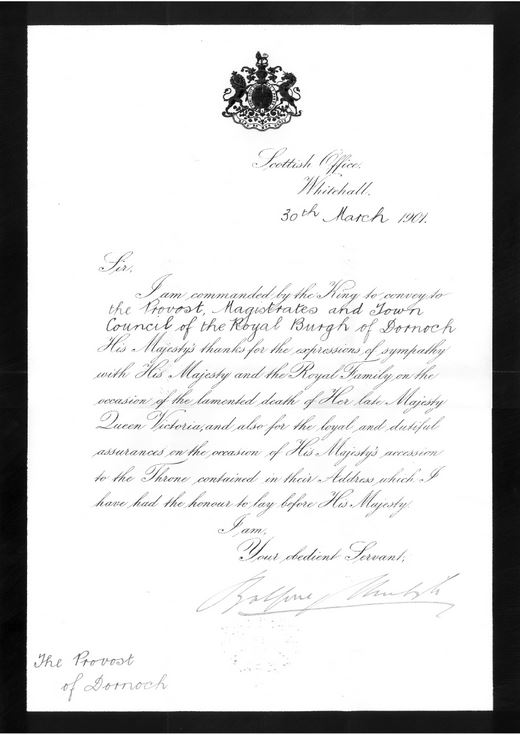 Scottish Office,
Whitehall.
30th March 1901.
Sir,
I am commanded by the King to convey to
the Provost, Magistrates and Town
Council of the Royal Burgh of Dornoch
His Majesty's thanks for the expressions of sympathy
with His Majesty and the Royal Family on the
occasion of the lamented death of Her late Majesty
Queen Victoria, and also for the loyal and dutiful
assurances on the occasion of His Majesty's accession
to the Throne contained in their Address, which I
have had the honour to lay before His Majesty.
I am,
Your obedient Servant,
Balfour
The Provost
of Dornoch